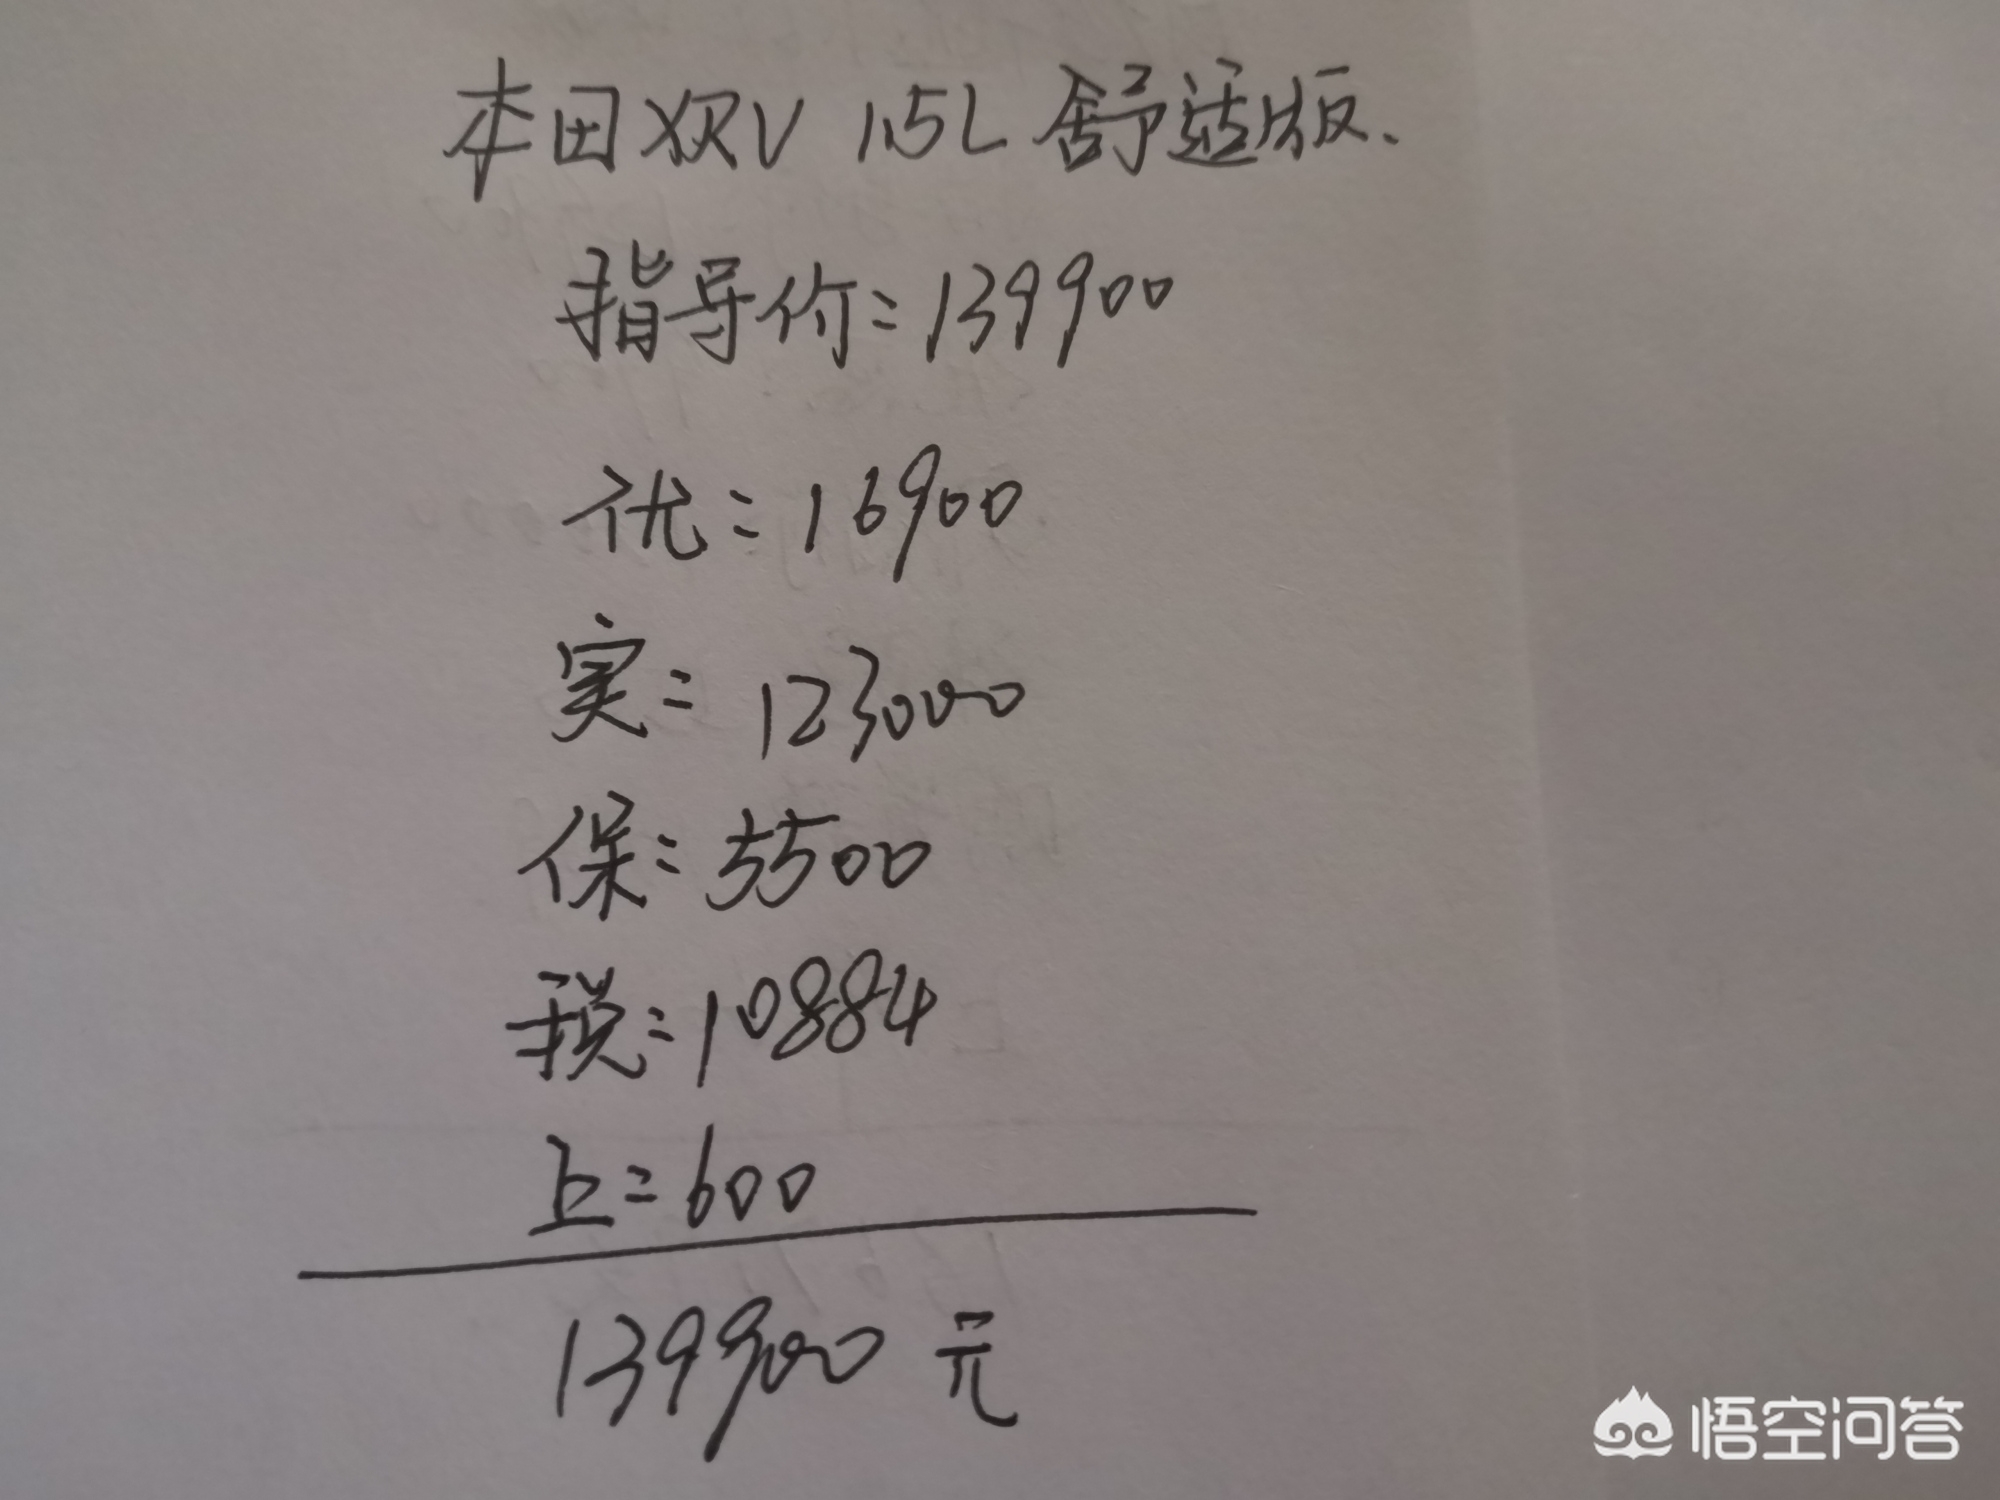 本田XRV 1.5L 舒适版.
指导价=139900
优=16900
实=123000
保=5500
税=10884
上=600
139900元
悟空问答